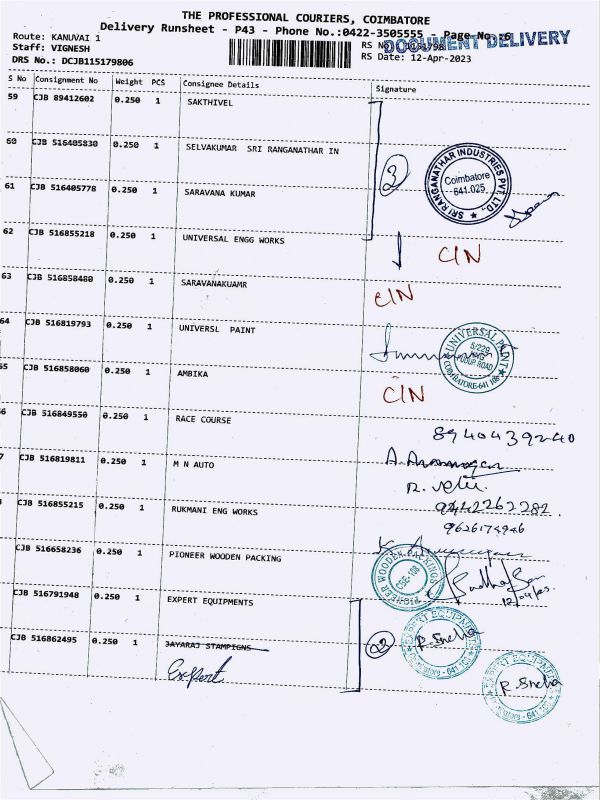 THE PROFESSIONAL COURIERS, COIMBATORE
Delivery Runsheet - P43 - Phone No.:0422-3505555 - Page No.:6
DOCUMENT DELIVERY
Route: KANUVAI 1
Staff: VIGNESH
DRS No.: DCJB115179806
RS Date: 12-Apr-2023
S No Consignment No Weight PCS Consignee Details Signature
59 CJB 89412602 0.250 1 SAKTHIVEL
60 CJB 516405830 0.250 1 SELVAKUMAR SRI RANGANATHAR IN
3
SRI RANGANATHAR INDUSTRIES PVT. LTD.,
Coimbatore
641.025
61 CJB 516405778 0.250 1 SARAVANA KUMAR
62 CJB 516855218 0.250 1 UNIVERSAL ENGG WORKS CIN
63 CJB 516858480 0.250 1 SARAVANAKUAMR CIN
64 CJB 516819793 0.250 1 UNIVERSL PAINT
UNIVERSAL PAINT
5/229
ROAD
COIMBATORE-641 108
55 CJB 516858060 0.250 1 AMBIKA CIN
6 CJB 516849550 0.250 1 RACE COURSE 8940439240
7 CJB 516819811 0.250 1 M N AUTO
R. velu.
CJB 516855215 0.250 1 RUKMANI ENG WORKS 9442262282.
9626174946
CJB 516658236 0.250 1 PIONEER WOODEN PACKING
PIONEER WOODEN PACKINGS
CBE-108
CJB 516791948 0.250 1 EXPERT EQUIPMENTS
2
EXPERT EQUIPMENTS
P. Sneha
Coimbatore - 641 101
CJB 516862495 0.250 1 JAYARAJ STAMPIGNS
Expert
EXPERT EQUIPMENTS
P. Sneha
Coimbatore - 641 101